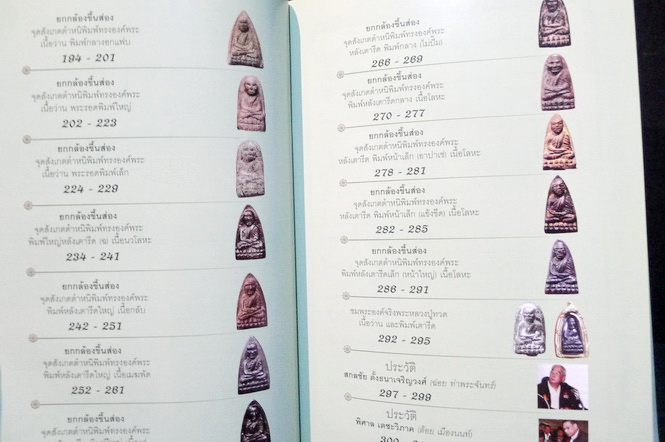 ยกกล้องขึ้นส่อง
จุดสังเกตตำหนิพิมพ์ทรงองค์พระ
เนื้อว่าน พิมพ์กลางอกแฟบ
194 - 201
ยกกล้องขึ้นส่อง
จุดสังเกตตำหนิพิมพ์ทรงองค์พระ
เนื้อว่าน พระรอดพิมพ์ใหญ่
202 - 223
ยกกล้องขึ้นส่อง
จุดสังเกตตำหนิพิมพ์ทรงองค์พระ
เนื้อว่าน พระรอดพิมพ์เล็ก
224 - 229
ยกกล้องขึ้นส่อง
จุดสังเกตตำหนิพิมพ์ทรงองค์พระ
พิมพ์ใหญ่หลังเตารีด (ฆ) เนื้อนวโลหะ
234 - 241
ยกกล้องขึ้นส่อง
จุดสังเกตตำหนิพิมพ์ทรงองค์พระ
พิมพ์หลังเตารีดใหญ่ เนื้อกลับ
242 - 251
ยกกล้องขึ้นส่อง
จุดสังเกตตำหนิพิมพ์ทรงองค์พระ
พิมพ์หลังเตารีดใหญ่ เนื้อเมฆพัด
252 - 261
ยกกล้องขึ้นส่อง
จุดสังเกตตำหนิพิมพ์ทรงองค์พระ
ยกกล้องขึ้นส่อง
จุดสังเกตตำหนิพิมพ์ทรงองค์พระ
หลังเตารีด พิมพ์กลาง (ไม่ปั๊ม)
266 - 269
ยกกล้องขึ้นส่อง
จุดสังเกตตำหนิพิมพ์ทรงองค์พระ
พิมพ์หลังเตารีดกลาง เนื้อโลหะ
270 - 277
ยกกล้องขึ้นส่อง
จุดสังเกตตำหนิพิมพ์ทรงองค์พระ
หลังเตารีด พิมพ์หน้าเล็ก (อาปาเช่) เนื้อโลหะ
278 - 281
ยกกล้องขึ้นส่อง
จุดสังเกตตำหนิพิมพ์ทรงองค์พระ
หลังเตารีด พิมพ์หน้าเล็ก (แข้งขีด) เนื้อโลหะ
282 - 285
ยกกล้องขึ้นส่อง
จุดสังเกตตำหนิพิมพ์ทรงองค์พระ
พิมพ์หลังเตารีดเล็ก (หน้าใหญ่) เนื้อโลหะ
286 - 291
ชมพระองค์จริงพระหลวงปู่ทวด
เนื้อว่าน และพิมพ์เตารีด
292 - 295
ประวัติ
สกลชัย ตั้งธนาเจริญวงศ์ (ฉ่อย ท่าพระจันทร์)
297 - 299
ประวัติ
พิศาล เตชะวิภาค (ต้อย เมืองนนท์)